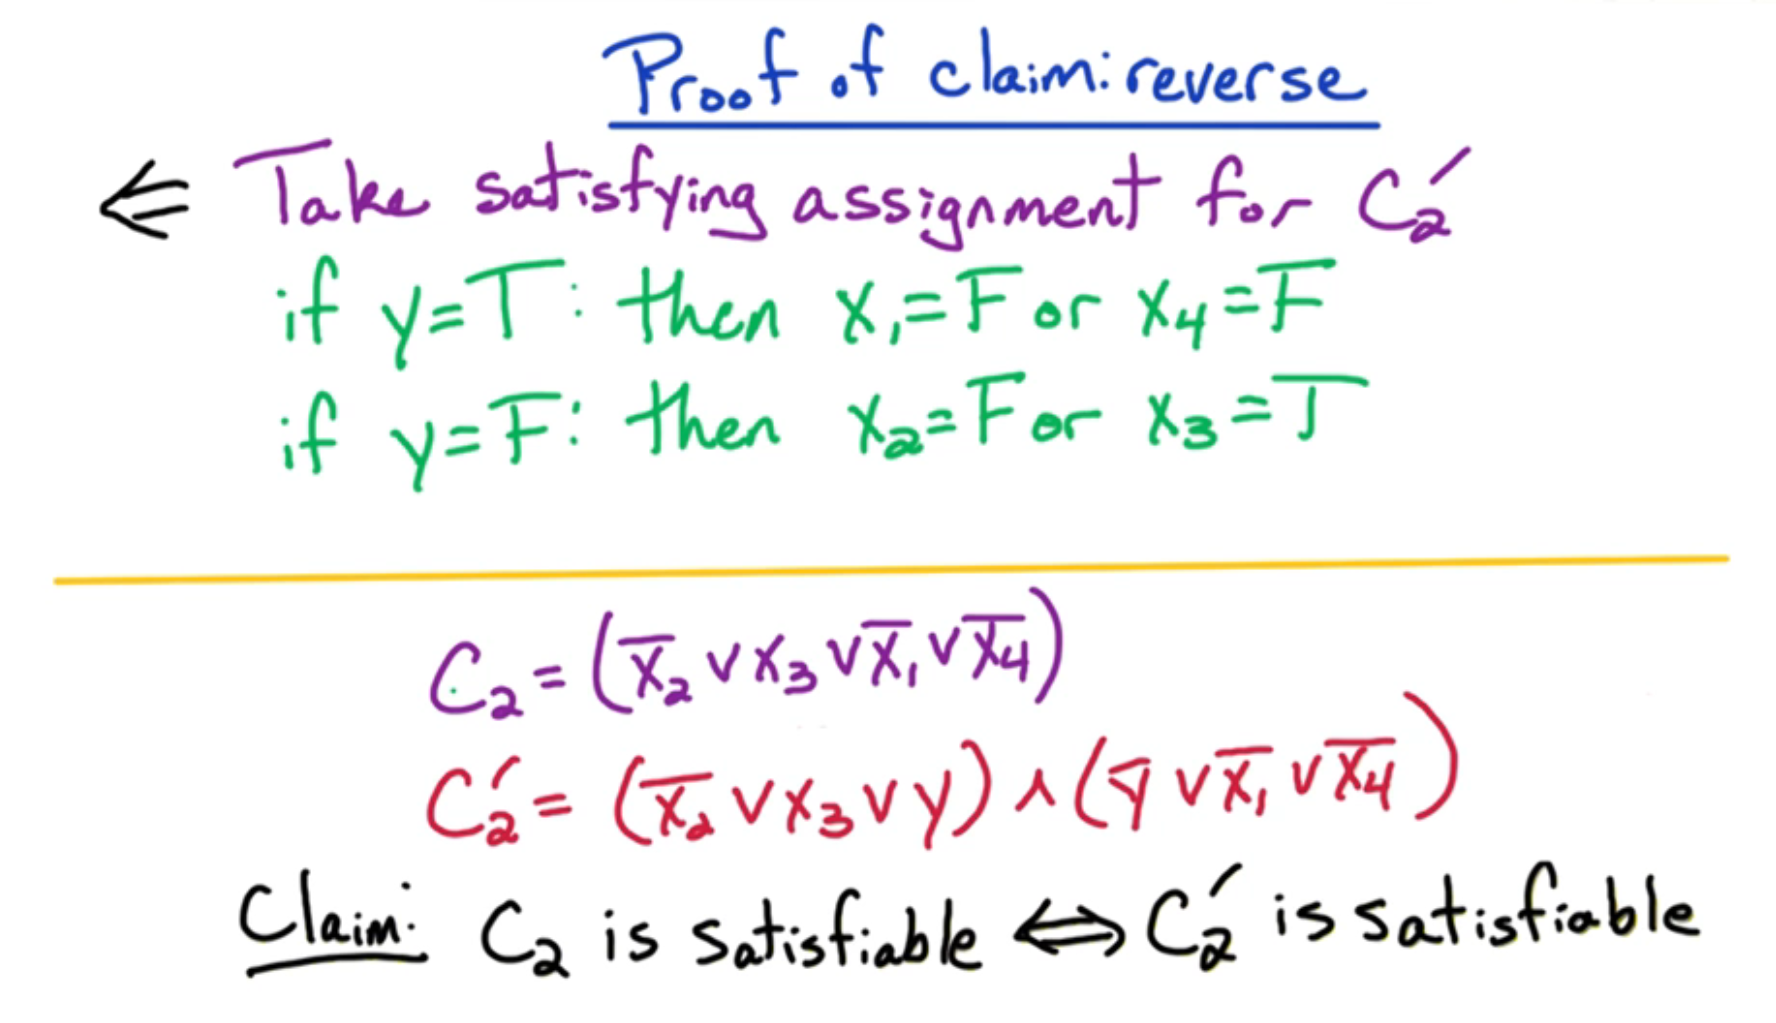 Proof of claim: reverse
⇐ Take satisfying assignment for C₂′
if y=T: then x₁=F or x₄=F
if y=F: then x₂=F or x₃=T
C₂ = (x̅₂ ∨ x₃ ∨ x̅₁ ∨ x̅₄)
C₂′ = (x̅₂ ∨ x₃ ∨ y) ∧ (y̅ ∨ x̅₁ ∨ x̅₄)
Claim: C₂ is satisfiable ⟺ C₂′ is satisfiable